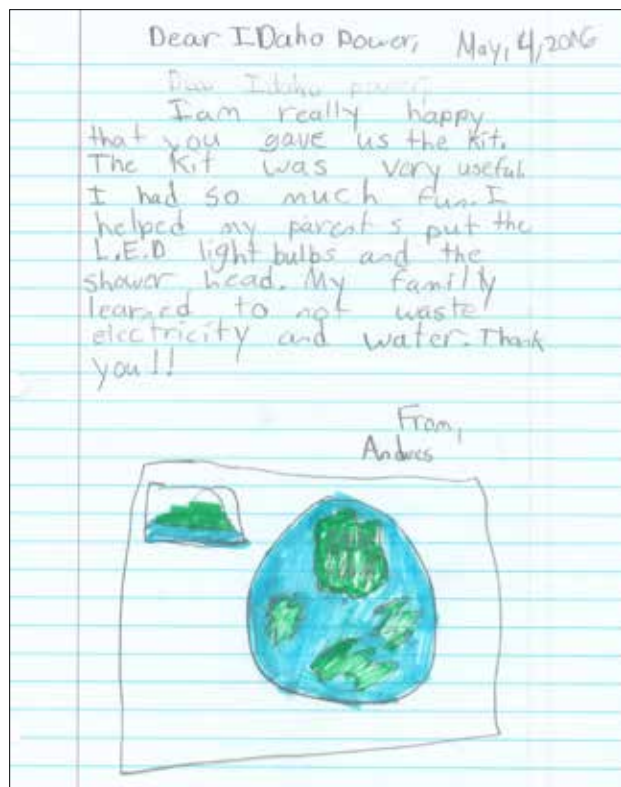 Dear IDaho Power, May, 4, 2016
Dear Idaho power,
I am really happy
that you gave us the kit.
The kit was very useful.
I had so much fun. I
helped my parents put the
L.E.D light bulbs and the
shower head. My family
learned to not waste
electricity and water. Thank
you!!
From,
Andres